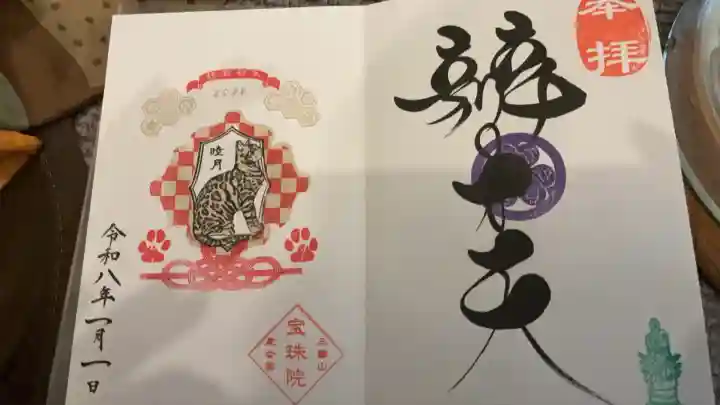 奉拝
辨才天
睦月
令和八年一月一日
三縁山
宝珠院